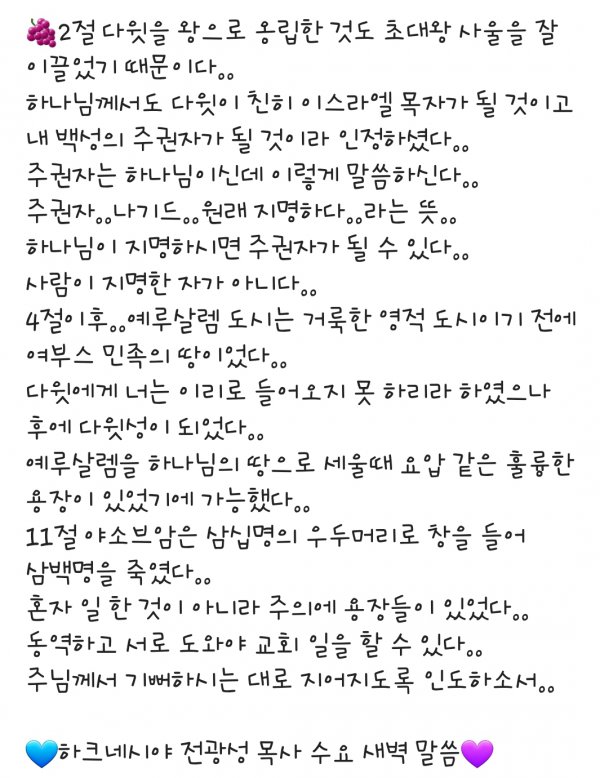 🍇2절 다윗을 왕으로 옹립한 것도 초대왕 사울을 잘
이끌었기 때문이다。。
하나님께서도 다윗이 친히 이스라엘 목자가 될 것이고
내 백성의 주권자가 될 것이라 인정하셨다。。
주권자는 하나님이신데 이렇게 말씀하신다。。
주권자。。나기드。。원래 지명하다。。라는 뜻。。
하나님이 지명하시면 주권자가 될 수 있다。。
사람이 지명한 자가 아니다。。
4절이후。。예루살렘 도시는 거룩한 영적 도시이기 전에
여부스 민족의 땅이었다。。
다윗에게 너는 이리로 들어오지 못 하리라 하였으나
후에 다윗성이 되었다。。
예루살렘을 하나님의 땅으로 세울때 요압 같은 훌륭한
용장이 있었기에 가능했다。。
11절 야소브암은 삼십명의 우두머리로 창을 들어
삼백명을 죽였다。。
혼자 일 한 것이 아니라 주의에 용장들이 있었다。。
동역하고 서로 도와야 교회 일을 할 수 있다。。
주님께서 기뻐하시는 대로 지어지도록 인도하소서。。
💙하크네시야 전광성 목사 수요 새벽 말씀💜